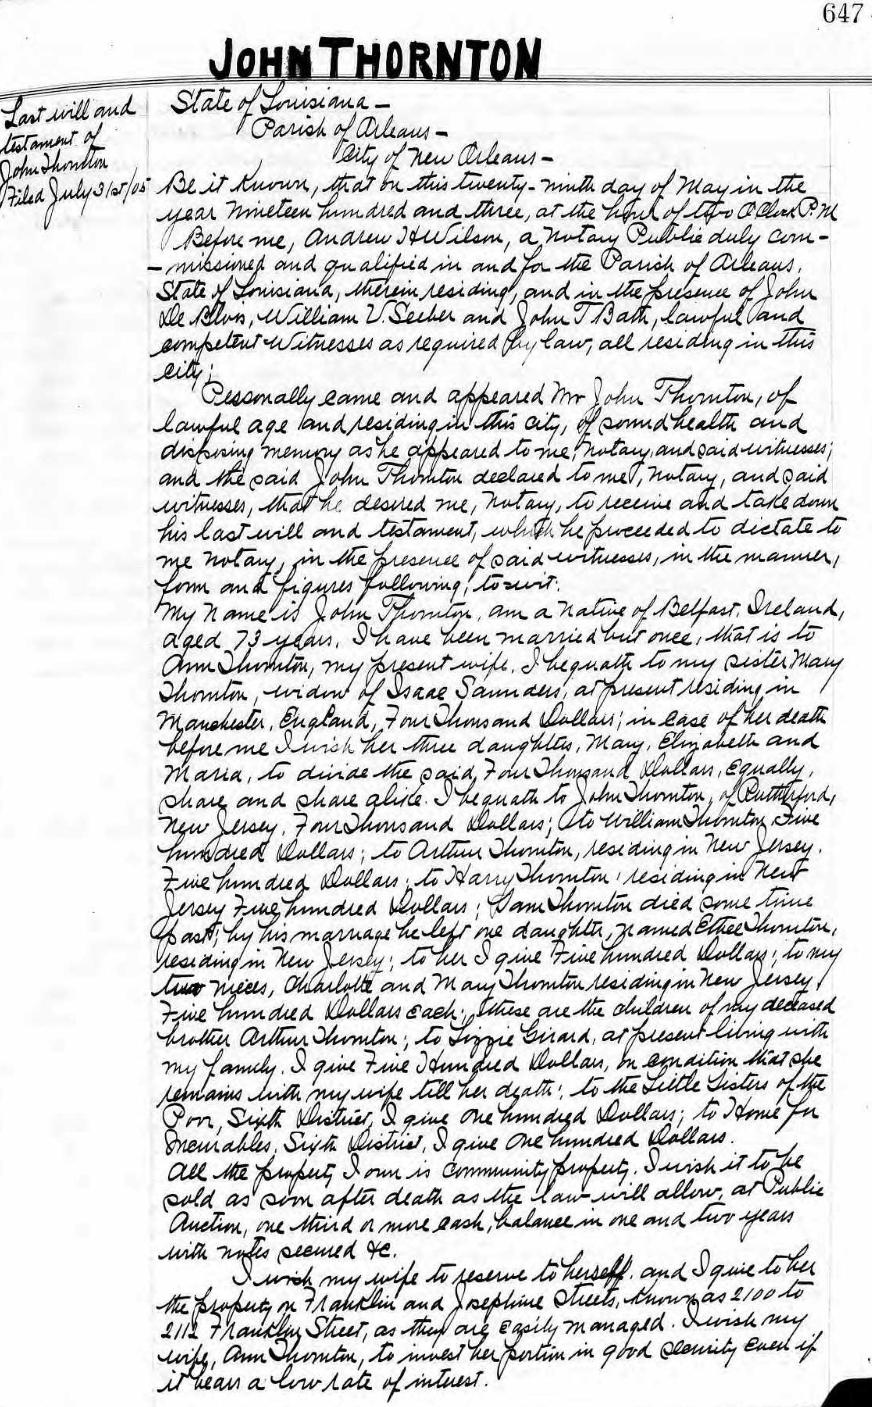 647
JOHN THORNTON
Last will and
testament of
John Thornton
Filed July 31st/05
State of Louisiana —
Parish of Orleans —
City of New Orleans —
Be it Known, that on this twenty-ninth day of May in the
year Nineteen hundred and three, at the hour of two O'Clock P.M
Before me, Andrew H Wilson, a Notary Public duly com-
-missioned and qualified in and for the Parish of Orleans,
State of Louisiana, therein residing, and in the presence of John
De Blois, William V. Seeber and John T Bath, lawful and
competent Witnesses as required by law, all residing in this
city;
Personally came and appeared Mr John Thornton, of
lawful age and residing in this city, of sound health and
disposing memory as he appeared to me, Notary, and said witnesses;
and the said John Thornton declared to me, Notary, and said
witnesses, that he desered me, Notary, to receive and take down
his last will and testament, which he proceeded to dictate to
me Notary, in the presence of said witnesses, in the manner,
form and figures following, to wit:
My Name is John Thornton, am a native of Belfast, Ireland,
aged 73 years, I have been married but once, that is to
Ann Thornton, my present wife. I bequath to my sister Mary
Thornton, widow of Isaac Saunders, at present residing in
Manchester, England, Four Thousand Dollars; in case of her death
before me I wish her three daughters, Mary, Elizabeth and
Maria, to divide the said, Four Thousand Dollars, Equally,
share and share alike. I bequath to John Thornton, of Rutherford,
New Jersey, Four Thousand Dollars; to William Thornton Five
hundred Dollars; to Arthur Thornton, residing in New Jersey.
Five hundred Dollars; to Harry Thornton residing in New
Jersey Five hundred Dollars; Sam Thornton died some time
past; by his marriage he left one daughter, named Ethel Thornton,
residing in New Jersey; to her I give Five hundred Dollars; to my
two nieces, Charlotte and Mary Thornton residing in New Jersey
Five hundred Dollars Each; these are the children of my deceased
brother Arthur Thornton; to Lizzie Girard, at present living with
my family. I give Five Hundred Dollars, on condition that she
remains with my wife till her death; to the Little Sisters of the
Poor, Sixth District, I give one hundred Dollars; to Home for
Incurables, Sixth District, I give One hundred Dollars.
All the property I own is Community property. I wish it to be
sold as soon after death as the law will allow, at Public
Auction, one third or more cash, balance in one and two years
with notes secured &c.
I wish my wife to reserve to herself, and I give to her
the property on Franklin and Josephine Streets, known as 2100 to
2112 Franklin Street, as they are Easily managed. I wish my
wife, Ann Thornton, to invest her portion in good security Even if
it bears a low rate of interest.